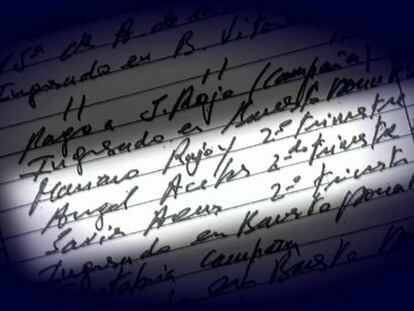 Ingresado en B. Vitoria
" "
Pago a J. Rojo (Campaña)
Ingresado en Banesto Donativ
Mariano Rajoy 2º trimestre
Angel Acebes 2do trimestre
Javier Arenas 2º trimestr
Ingresado en Banesto Donat
campaña
en Banesto Do